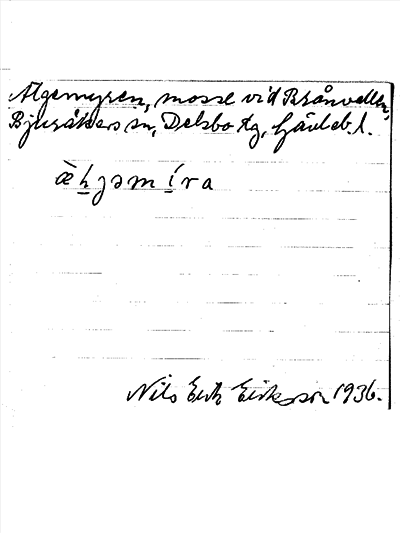 Älgemyren, mosse vid Brånvallen,
Bjuråkers sn, Delsbo tg, Gävleb. l.
æ̀h̲ɟəmí̲ra
Nils Erik Eriksson 1936.